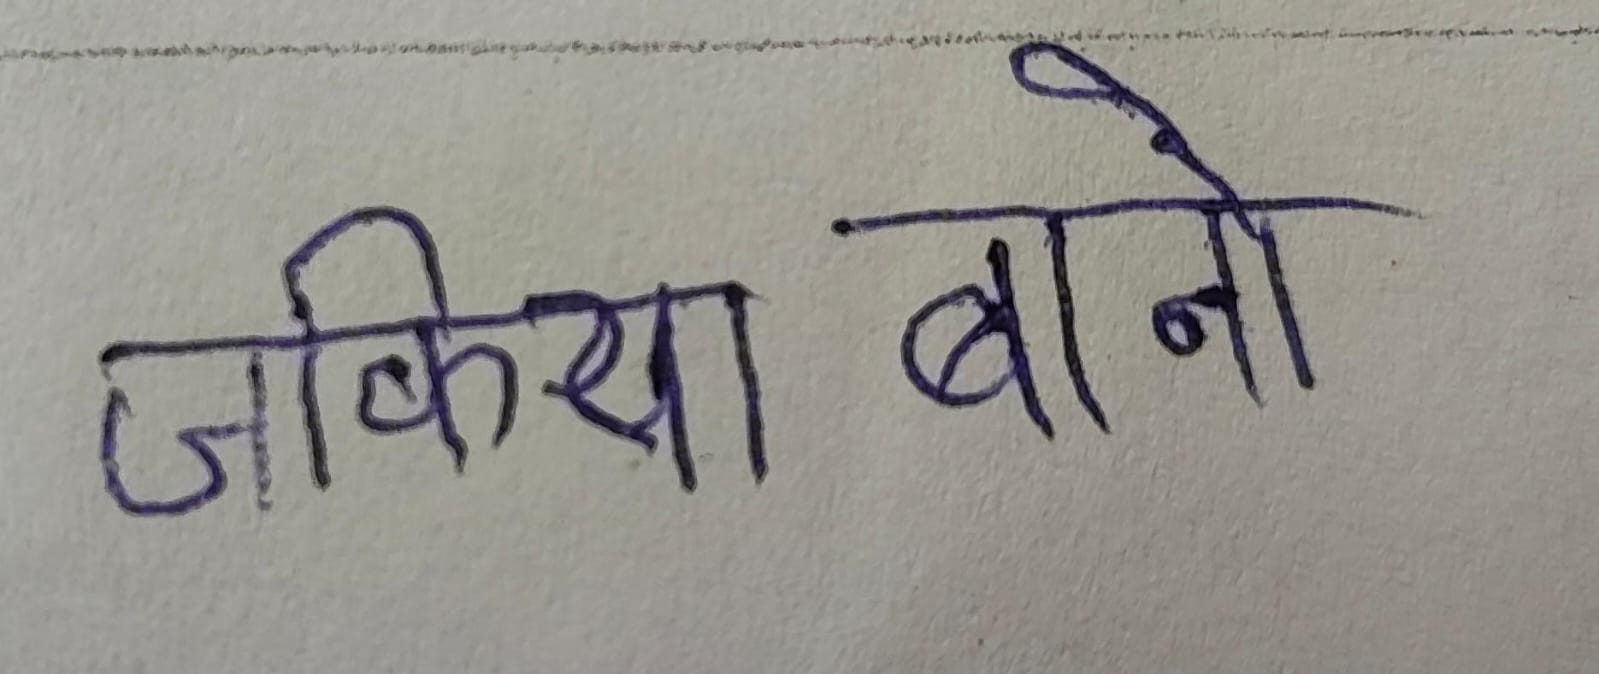 जकिया बानो